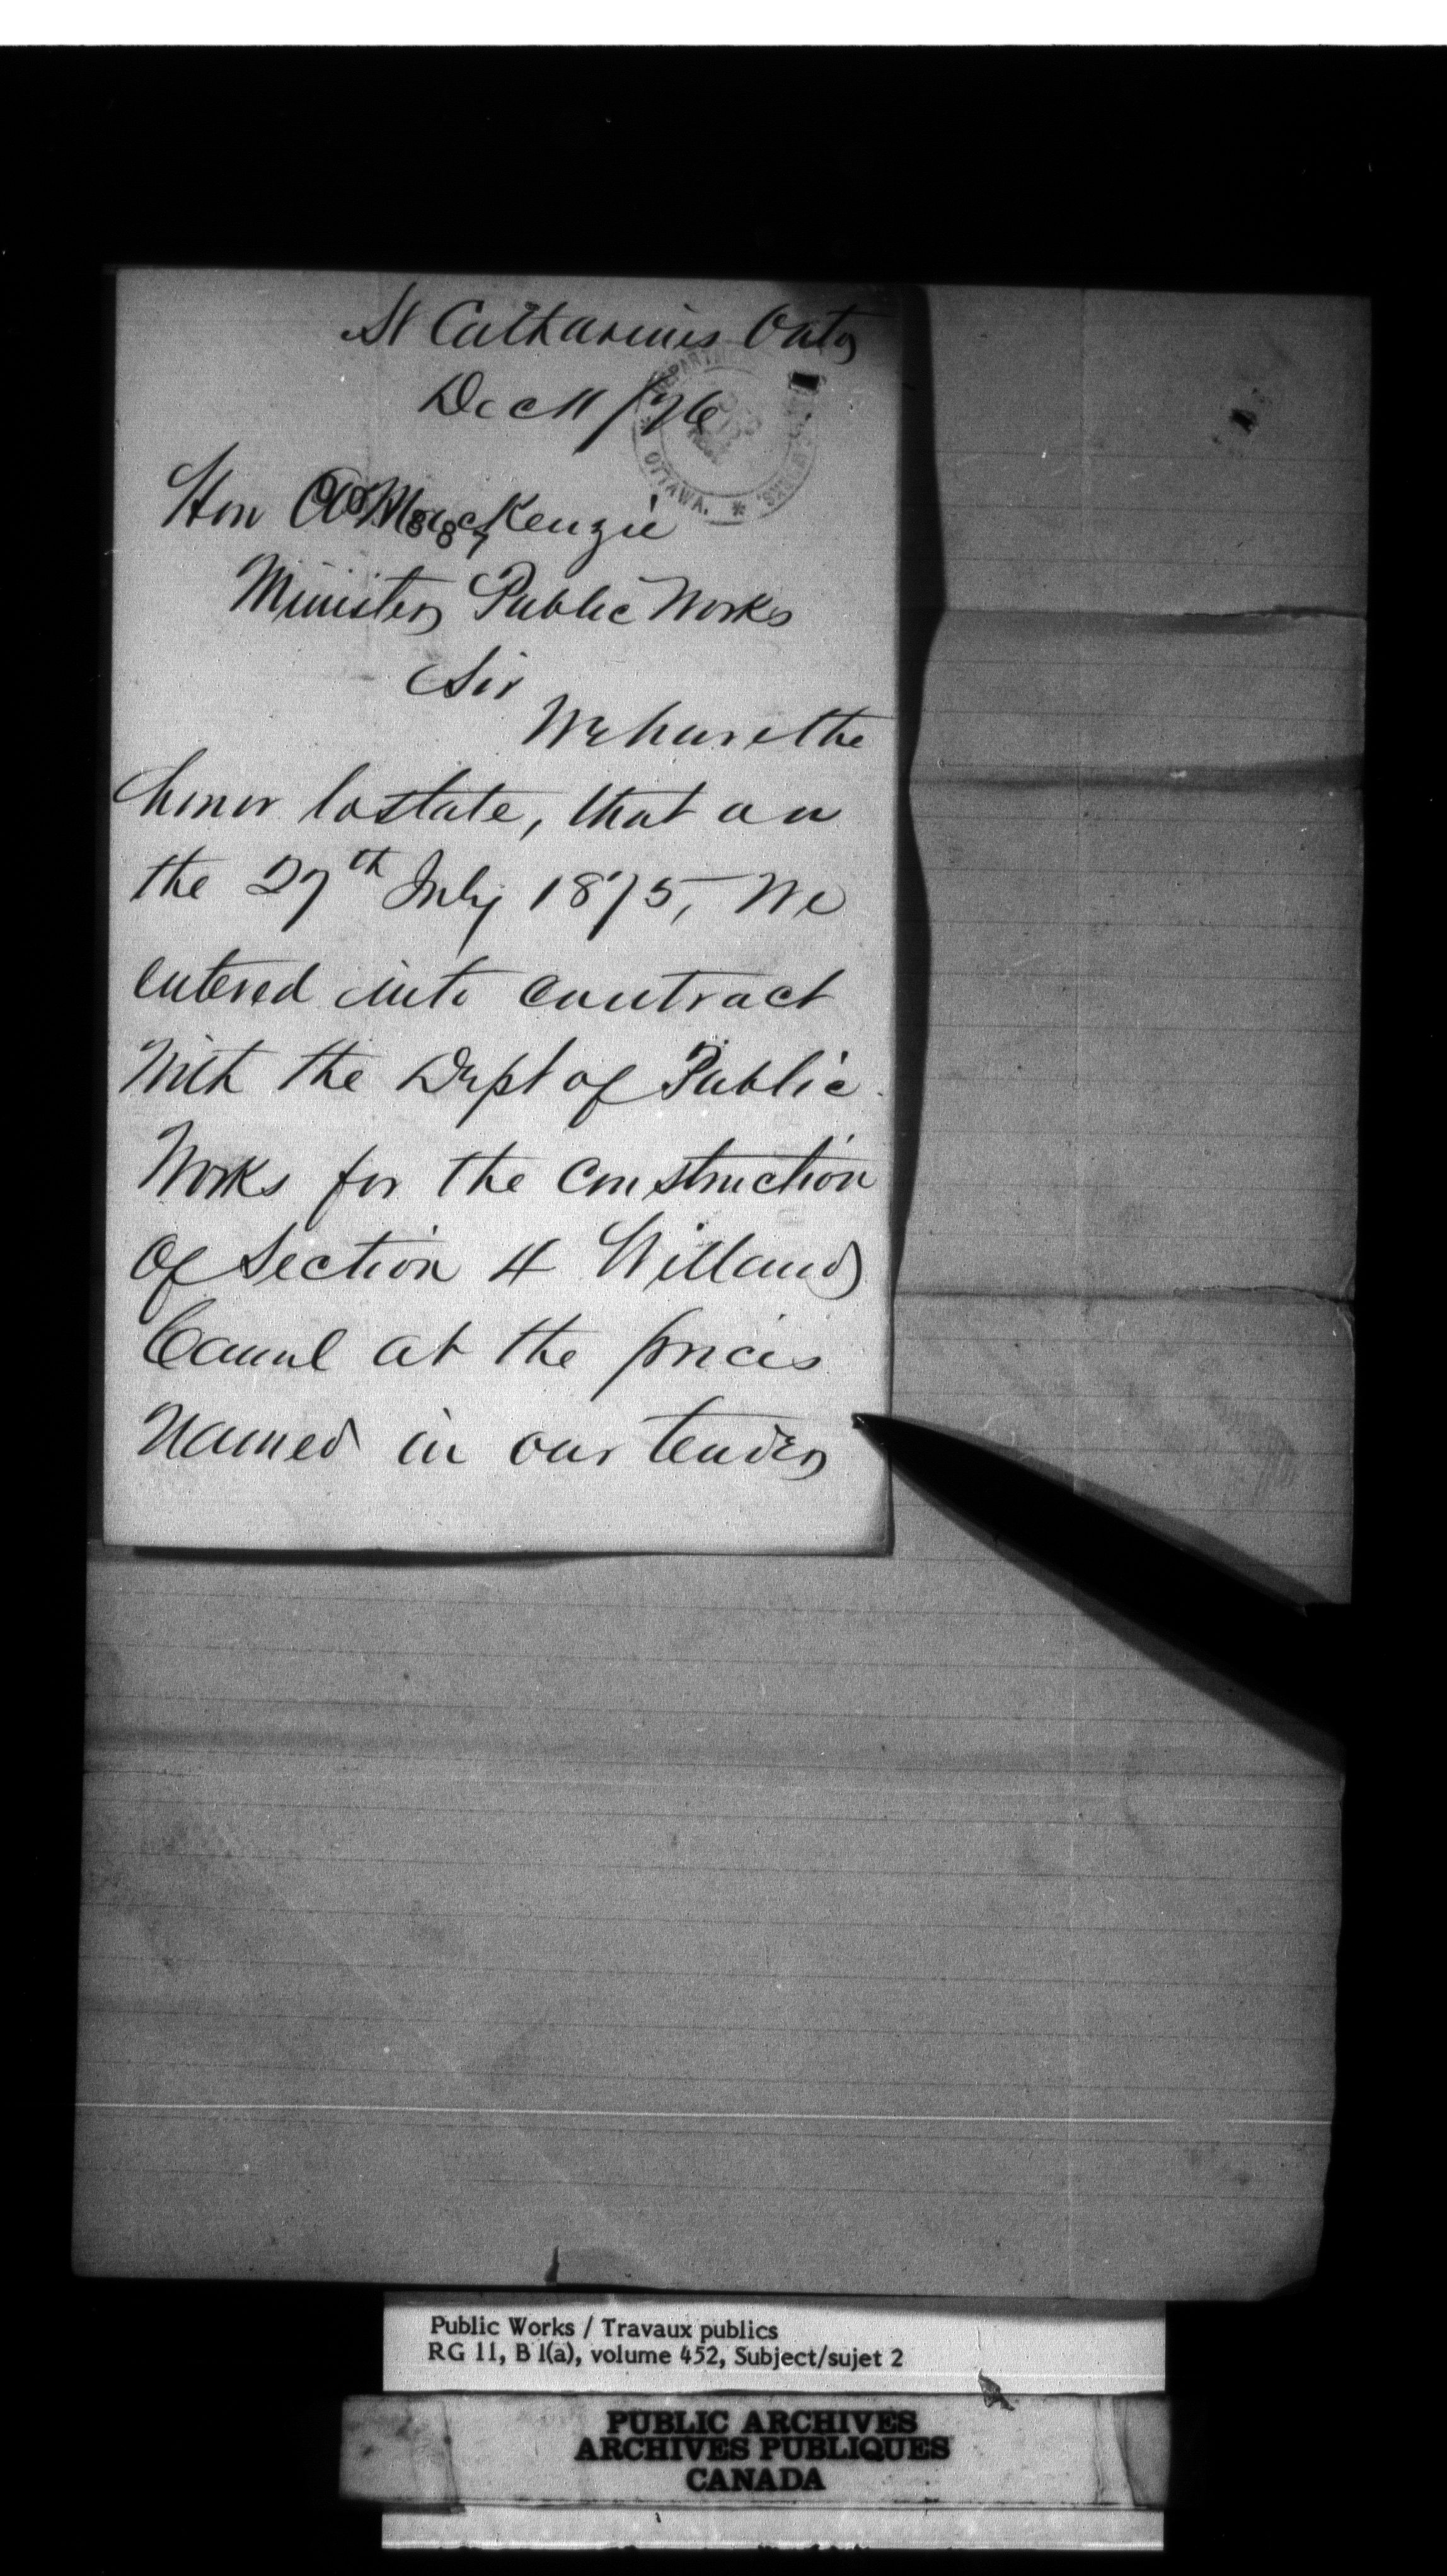 St Catharines Onto
Dec 11 / 76
Hon A MacKenzie
Minister Public Works
Sir
We have the
honor to state, that on
the 27th July 1875, We
entered into contract
With the Dept of Public
Works for the construction
Of Section 4 Welland
Canal at the prices
Named in our tender
OTTAWA.
Public Works / Travaux publics
RG 11, B 1(a), volume 452, Subject/sujet 2
PUBLIC ARCHIVES
ARCHIVES PUBLIQUES
CANADA